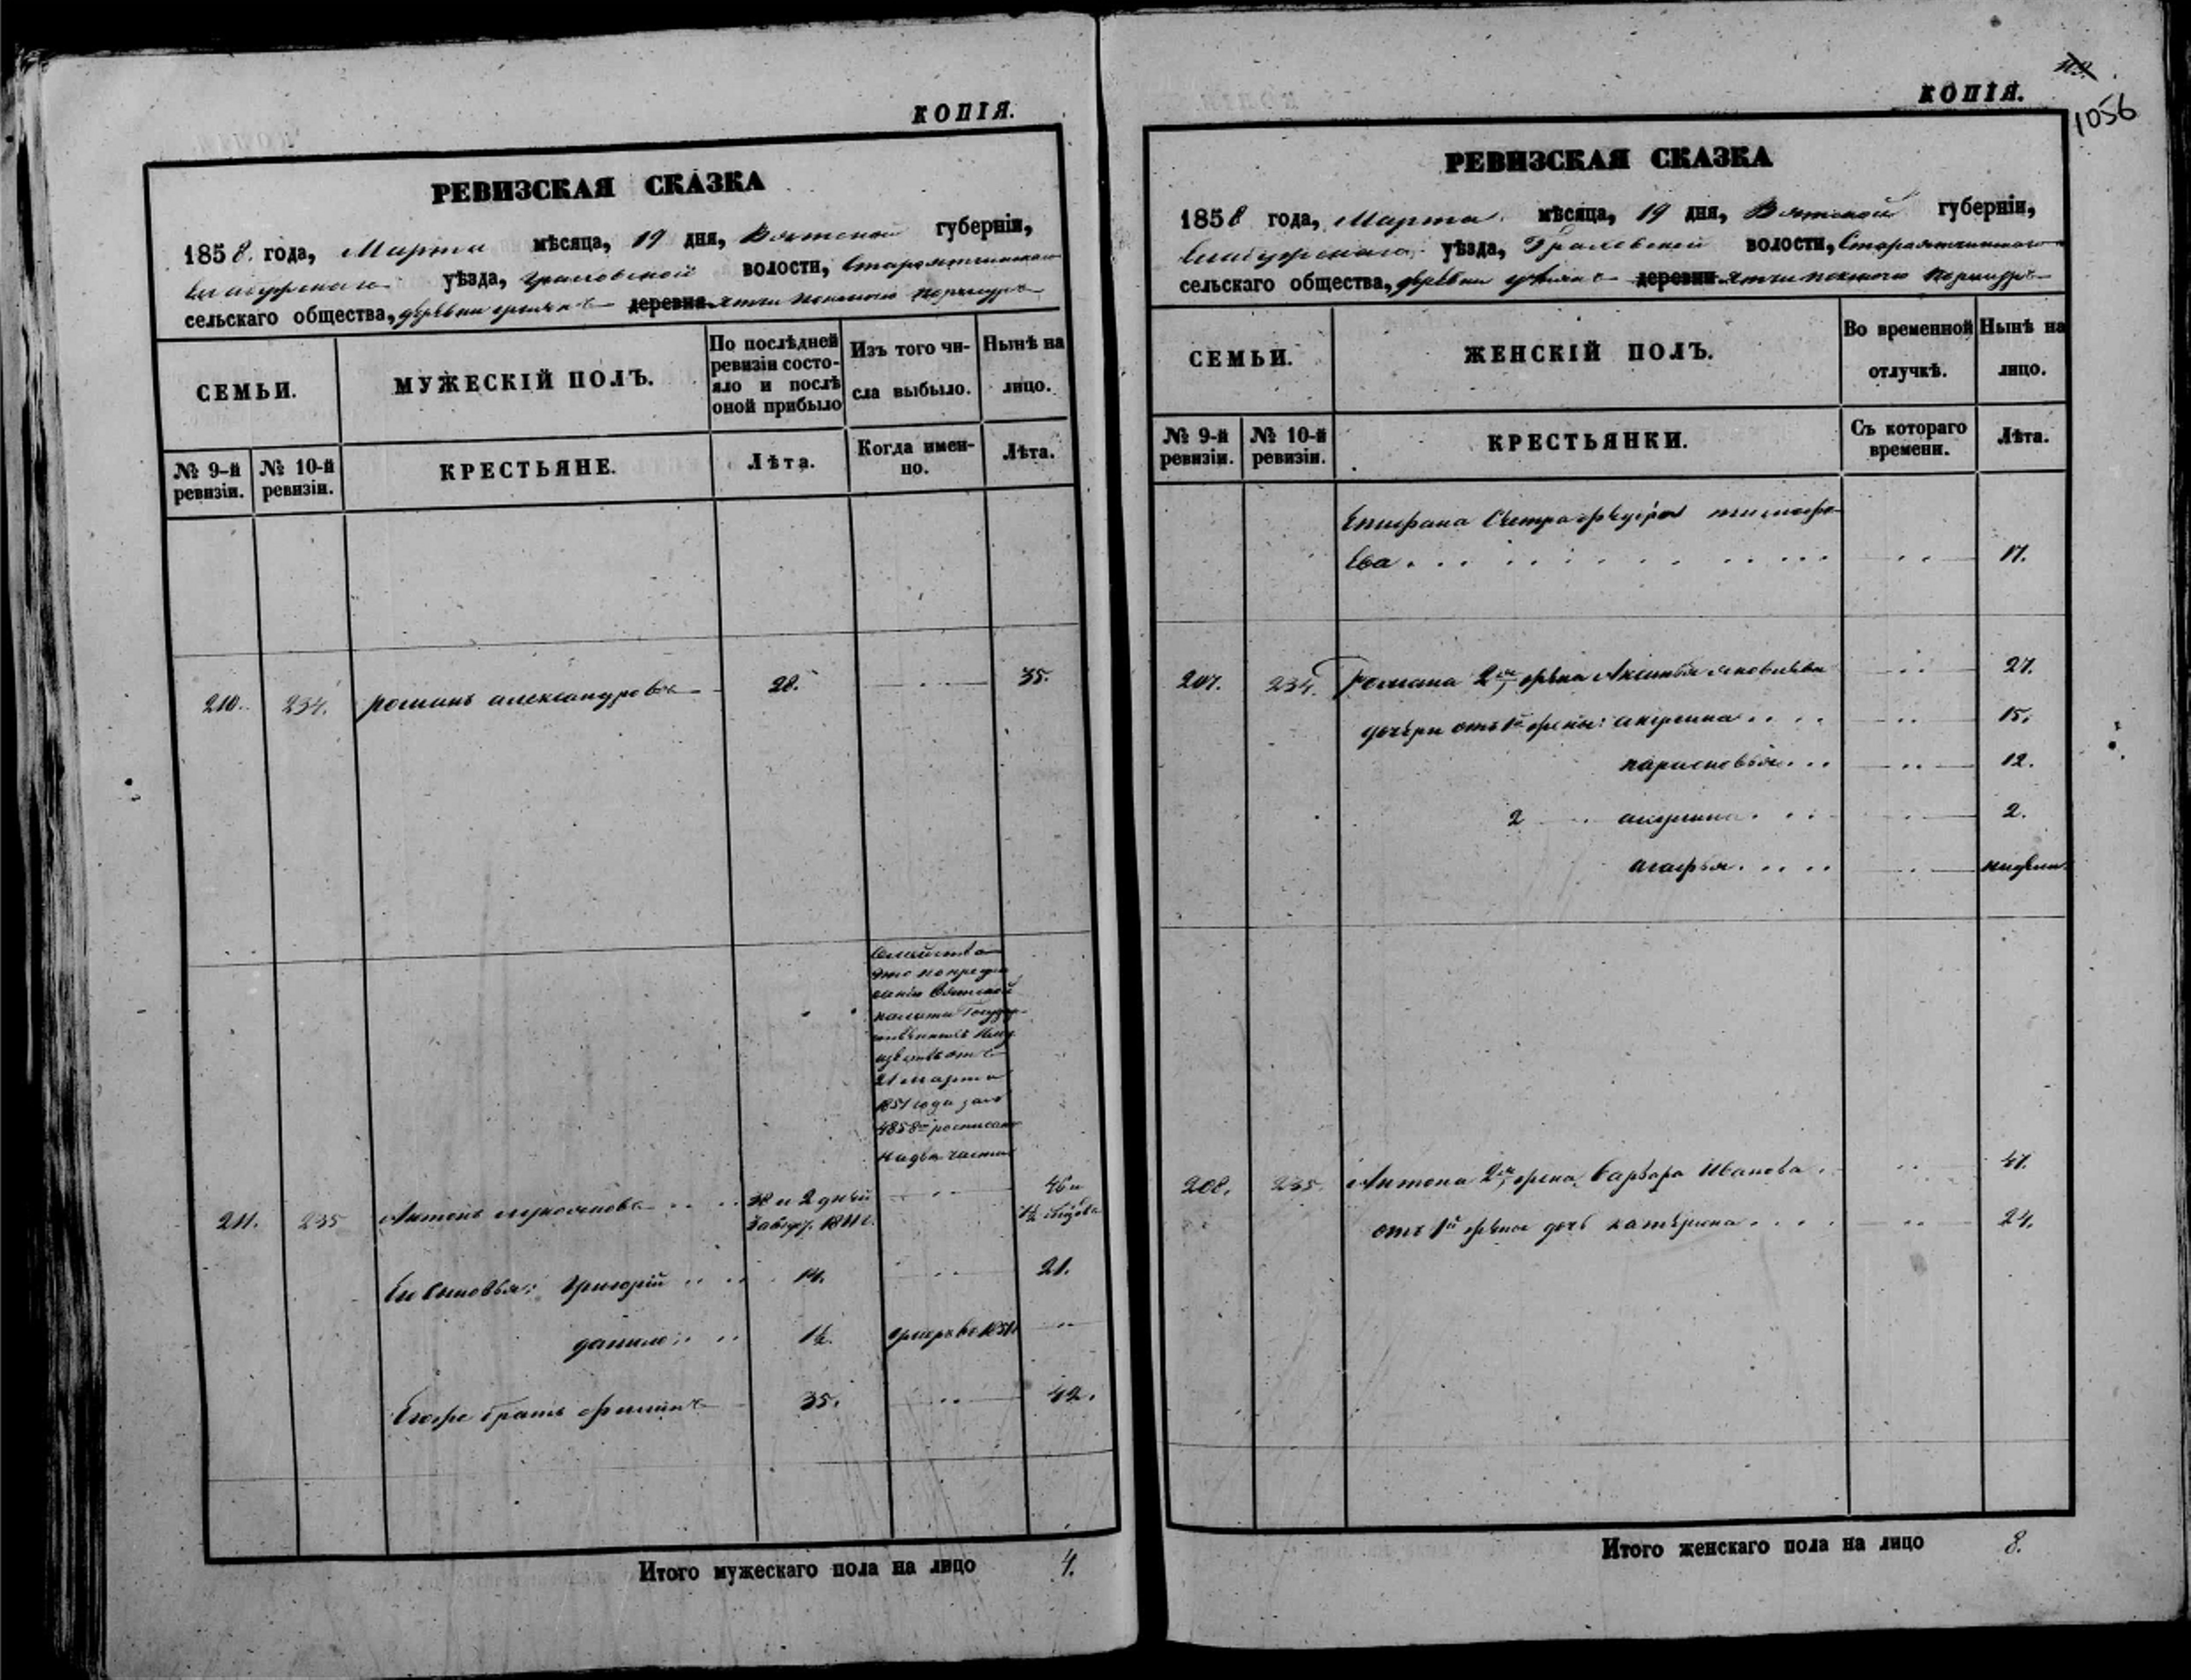 КОПІЯ.
РЕВИЗСКАЯ СКАЗКА
1858 года, Марта мѣсяца, 19 дня, Вятской губерніи,
Елабужскаго уѣзда, Граховской волости,
сельскаго общества, деревни деревня
СЕМЬИ.
МУЖЕСКІЙ ПОЛЪ.
По послѣдней ревизіи состо-
яло и послѣ
оной прибыло
Изъ того чи-
сла выбыло.
Нынѣ на
лицо.
№ 9-й
ревизіи.
№ 10-й
ревизіи.
КРЕСТЬЯНЕ.
Лѣта.
Когда имен-
но.
Лѣта.
210. 234. романъ александровъ 28. 35.
Семейство
это по предпи
санію Вятской
палаты Государ
ственныхъ Иму
21 марта
1851 года за №
4858
на два
211. 235 Антонъ 38 и 2 дней 46 и
1811 г. 1/2
Его сыновья: Григорій 14. 21.
данило 1 1/2. умеръ въ 1851
Его же братъ филипъ 35. 42.
Итого мужескаго пола на лицо 4.
КОПІЯ.
1056
РЕВИЗСКАЯ СКАЗКА
1858 года, Марта мѣсяца, 19 дня, Вятской губерніи,
Елабужскаго уѣзда, Граховской волости,
сельскаго общества, деревни деревня
СЕМЬИ.
ЖЕНСКІЙ ПОЛЪ.
Во временной
отлучкѣ.
Нынѣ на
лицо.
№ 9-й
ревизіи.
№ 10-й
ревизіи.
КРЕСТЬЯНКИ.
Съ котораго
времени.
Лѣта.
Епифана тимофе-
ева 17.
207. 234. Романа 2я жена Аксинья яковлева 27.
дочери отъ 1й жены: акулина 15.
парасковья 12.
2 акулина 2.
агафья недели.
208. 235 Антона 2я жена Варвара Иванова 47.
отъ 1й жены дочь катерина 24.
Итого женскаго пола на лицо 8.